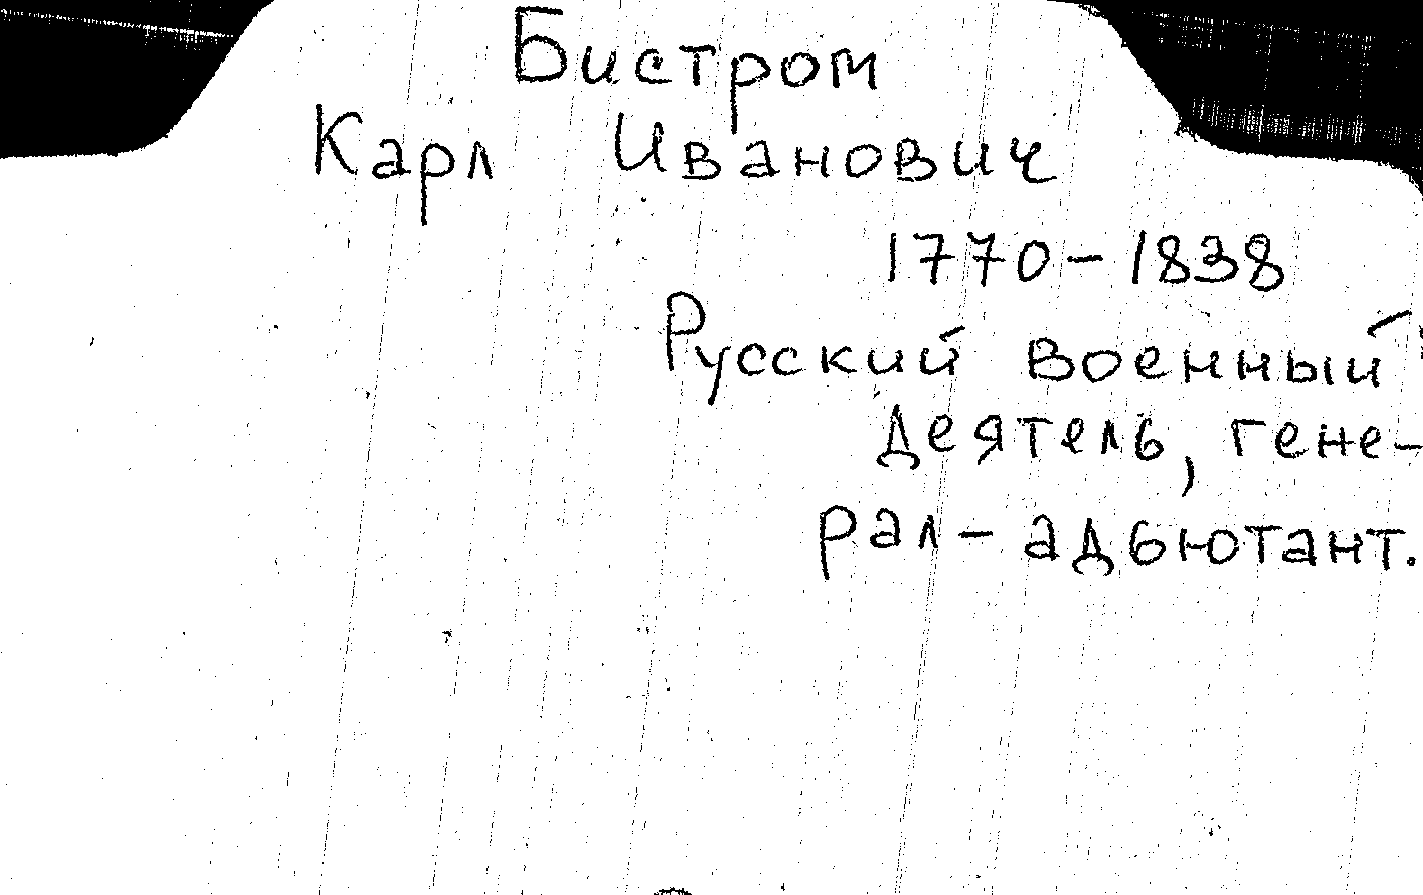 Бистром
Карл Иванович
1770-1838
Русский военный
деятель, гене-
рал-адьютант.